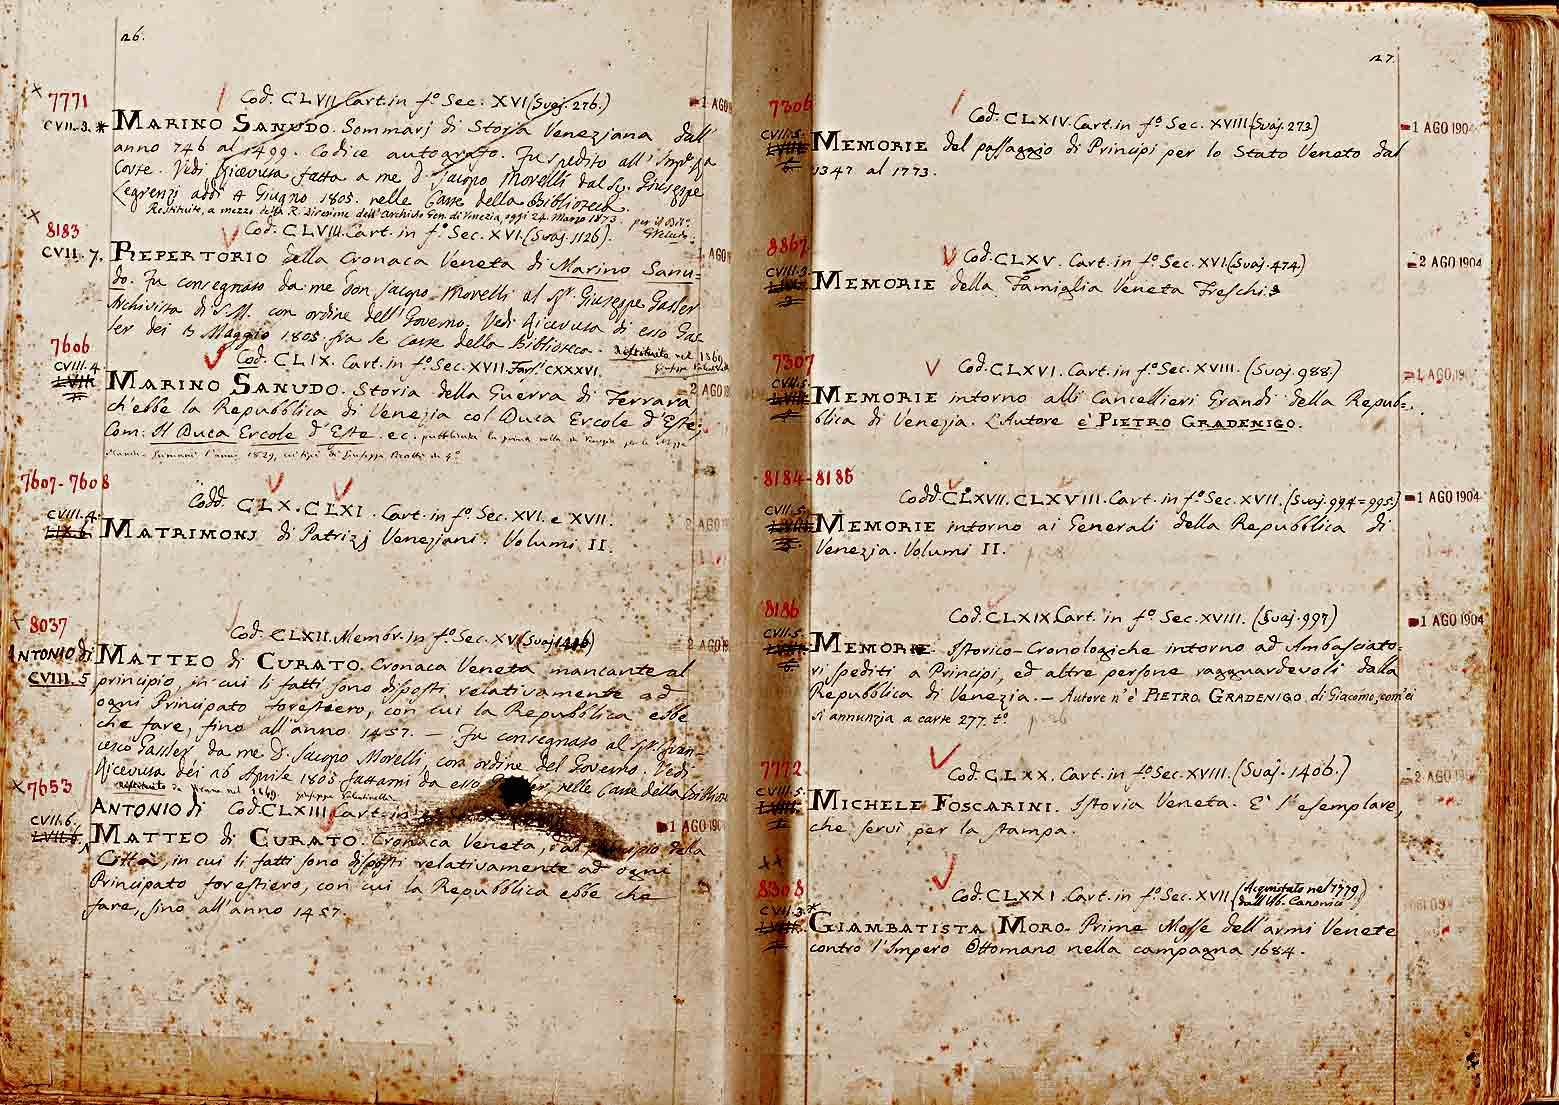 26.
× 7771
Cod. CLVII. Cart. in fº. Sec. XVI. (Svaj. 276.)
1 AGO
CVII. 3. * MARINO SANUDO. Sommarj di Storia Veneziana dall'
anno 746 al 1499. Codice autografo. Fu spedito all'
Corte. Vedi Ricevuta fatta a me D. Jacopo Morelli dal Sr. Giuseppe
Legrenzi addì 4 Giugno 1805. nelle Carte della Biblioteca.
Restituito, a mezzo della R. Direzione dell'Archivio Gen. di Venezia, oggi 24. Marzo 1873.
×
8183
Cod. CLVIII. Cart. in fº. Sec. XVI. (Svaj. 1126).
CVII. 7. REPERTORIO della Cronaca Veneta di Marino Sanu=
1 AGO
do. Fu consegnato da me don Jacopo Morelli al Sr. Giuseppe Gassler
Archivista di S.M. con ordine dell'Governo. Vedi Ricevuta di esso Gas
ler dei 13 Maggio 1805. fra le carte della Biblioteca. Restituito nel 1869
7606
Cod. CLIX. Cart. in fº. Sec. XVII. Fars. CXXXVI.
CVIII. 4.
MARINO SANUDO. Storia della Guerra di Ferrara
2 AGO
ch'ebbe la Repubblica di Venezia col Duca Ercole d'Este;
Com: Il Duca Ercole d'Este. ec. pubblicata la prima volta in Venezia
l'anno 1829, coi tipi di Giuseppe Picotti in 4º
7607-7608
Codd. CLX. CLXI. Cart. in fº. Sec. XVI. e XVII.
CVIII. 4.
LIX. 6. MATRIMONJ di Patrizj Veneziani. Volumi II.
2 AGO
× 8037
Cod. CLXII. Membr. in fº. Sec. XV. (Svaj.
2 AGO
ANTONIO di MATTEO di CURATO. Cronaca Veneta mancante al
CVIII. 5 principio, in cui li fatti sono disposti relativamente ad
ogni Principato forestiero, con cui la Repubblica ebbe
che fare, fino all'anno 1457. — Fu consegnato al Sr. Fran=
cesco Gassler da me D. Jacopo Morelli, con ordine del Governo. Vedi
Ricevuta dei 26 Aprile 1805 fattami da esso nelle Carte della Bibliote
Restituito da Vienna nel 1869. Giuseppe Valentinelli
× 7653
ANTONIO di Cod. CLXIII. Cart. in
CVII. 6.
1 AGO 190
MATTEO di CURATO. Cronaca Veneta, dal principio della
Città, in cui li fatti sono disposti relativamente ad ogni
Principato forestiero, con cui la Repubblica ebbe che
fare, fino all'anno 1457.
27.
7306
Cod. CLXIV. Cart. in fº. Sec. XVIII. (Svaj. 273)
1 AGO 1904
CVII. 5.
MEMORIE del passaggio di Principi per lo Stato Veneto dal
1347 al 1773.
8867
Cod. CLXV. Cart. in fº. Sec. XVI. (Svaj. 474)
2 AGO 1904
CVIII. 3.
MEMORIE della Famiglia Veneta Freschi.
7307
Cod. CLXVI. Cart. in fº. Sec. XVIII. (Svaj. 988.)
1 AGO 190
CVII. 5.
MEMORIE intorno alli Cancellieri Grandi della Repub=
blica di Venezia. L'Autore è PIETRO GRADENIGO.
8184-8185
Codd. CLXVII. CLXVIII. Cart. in fº. Sec. XVII. (Svaj. 994=995.)
1 AGO 1904
CVII. 5.
MEMORIE intorno ai Generali della Repubblica di
Venezia. Volumi II.
8186
Cod. CLXIX. Cart. in fº. Sec. XVIII. (Svaj. 997)
1 AGO 1904
CVII. 5.
MEMORIE Istorico-Cronologiche intorno ad Ambasciato=
ri spediti a Principi, ed altre persone ragguardevoli dalla
Repubblica di Venezia. — Autore n'è PIETRO GRADENIGO di Giacomo, com'ei
si annunzia a carte 277. tº.
7772
Cod. CLXX. Cart. in fº. Sec. XVIII. (Svaj. 1406.)
2 AGO 190
CVIII. 5.
MICHELE FOSCARINI. Istoria Veneta. E' l'esemplare,
che servì per la stampa.
××
8308
Cod. CLXXI. Cart. in fº. Sec. XVII (Acquistato nel 1779 dall'Ab. Canonici)
CVII. 3. *
GIAMBATISTA MORO. Prime Mosse dell'armi Venete
contro l'Impero Ottomano nella campagna 1684.